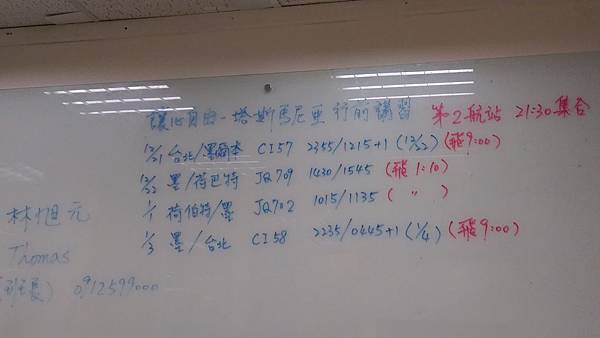 讓心自由-塔斯馬尼亞 行前講習 第2航站 21:30集合
12/21 台北/墨爾本 CI57 2355/1215+1 (12/22) (飛9:00)
12/22 墨/荷巴特 JQ709 1430/1545 (飛1:10)
1/1 荷伯特/墨 JQ702 1015/1135 ( " )
1/3 墨/台北 CI58 2235/0445+1 (1/4) (飛9:00)
林旭元
Thomas
(班長) 0912599000